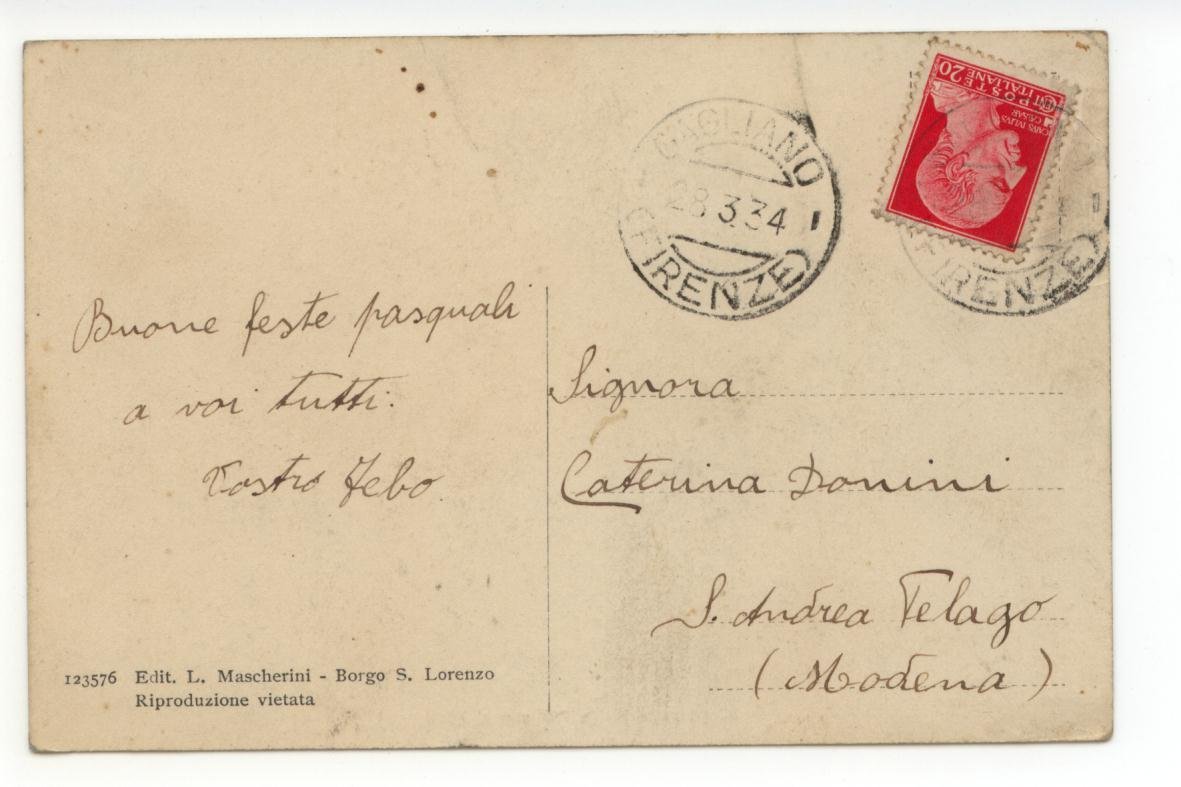 GAGLIANO
28.3.34
(FIRENZE)
POSTE 20
ITALIANE
CAIVS IVLIVS
CAESAR
(FIRENZE)
Buone feste pasquali
a voi tutti.
Vostro Febo
Signora
Caterina Donini
S. Andrea Pelago
(Modena)
123576 Edit. L. Mascherini - Borgo S. Lorenzo
Riproduzione vietata